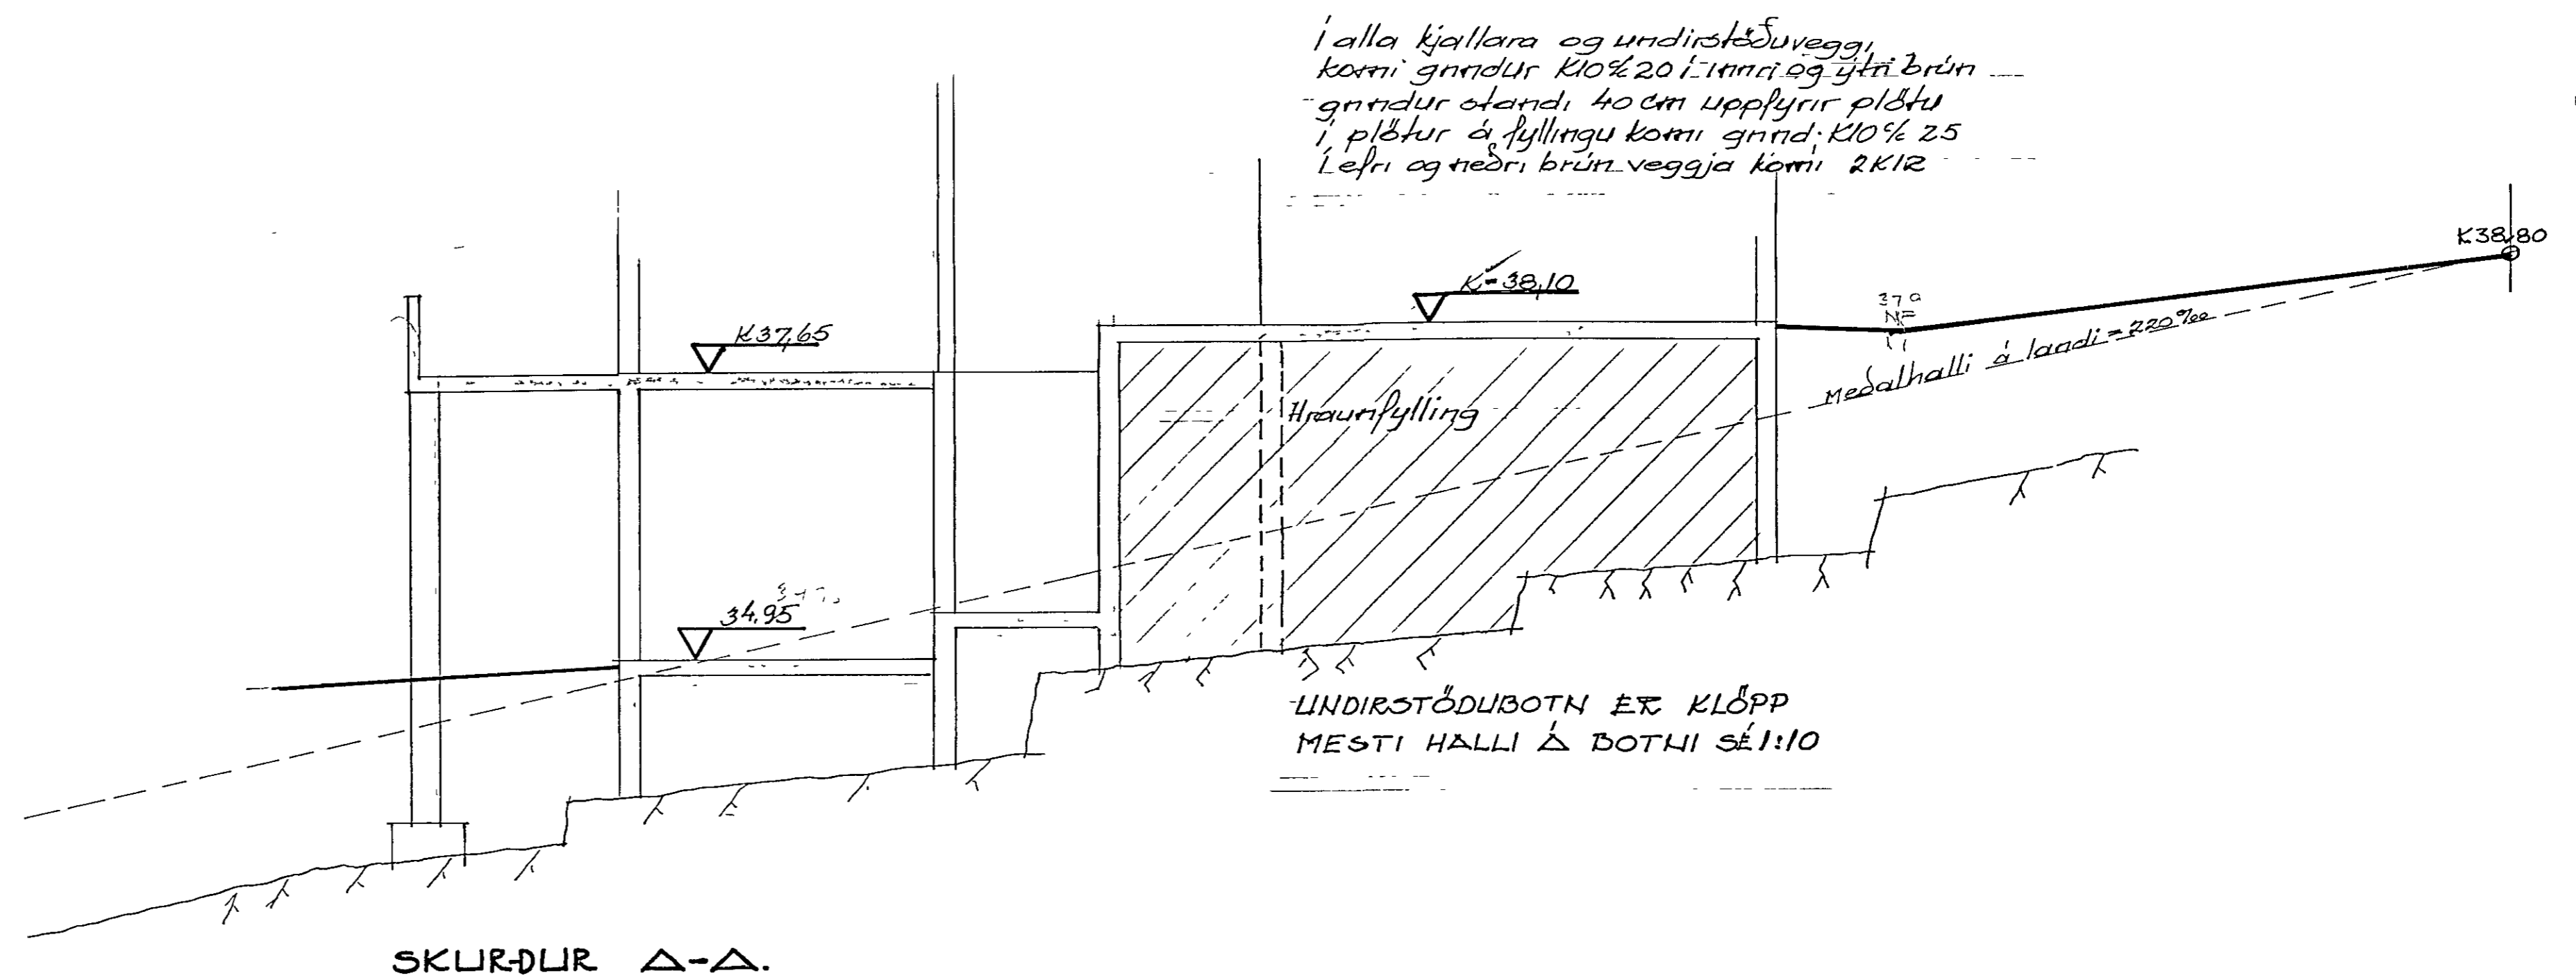 Í alla kjallara og undirstöðuveggi
komi grindur K10 c/c 20 í innri og ýtri brún
grindur standi 40 cm uppfyrir plötu
í plötur á fyllingu komi grind. K10 c/c 25
Í efri og neðri brún veggja komi 2K12
K38,80
K=38,10
K37,65
Meðalhalli á landi = 220‰
Hraunfylling
34,95
UNDIRSTÖÐUBOTN ER KLÖPP
MESTI HALLI Á BOTNI SÉ 1:10
SKURÐUR A-A.